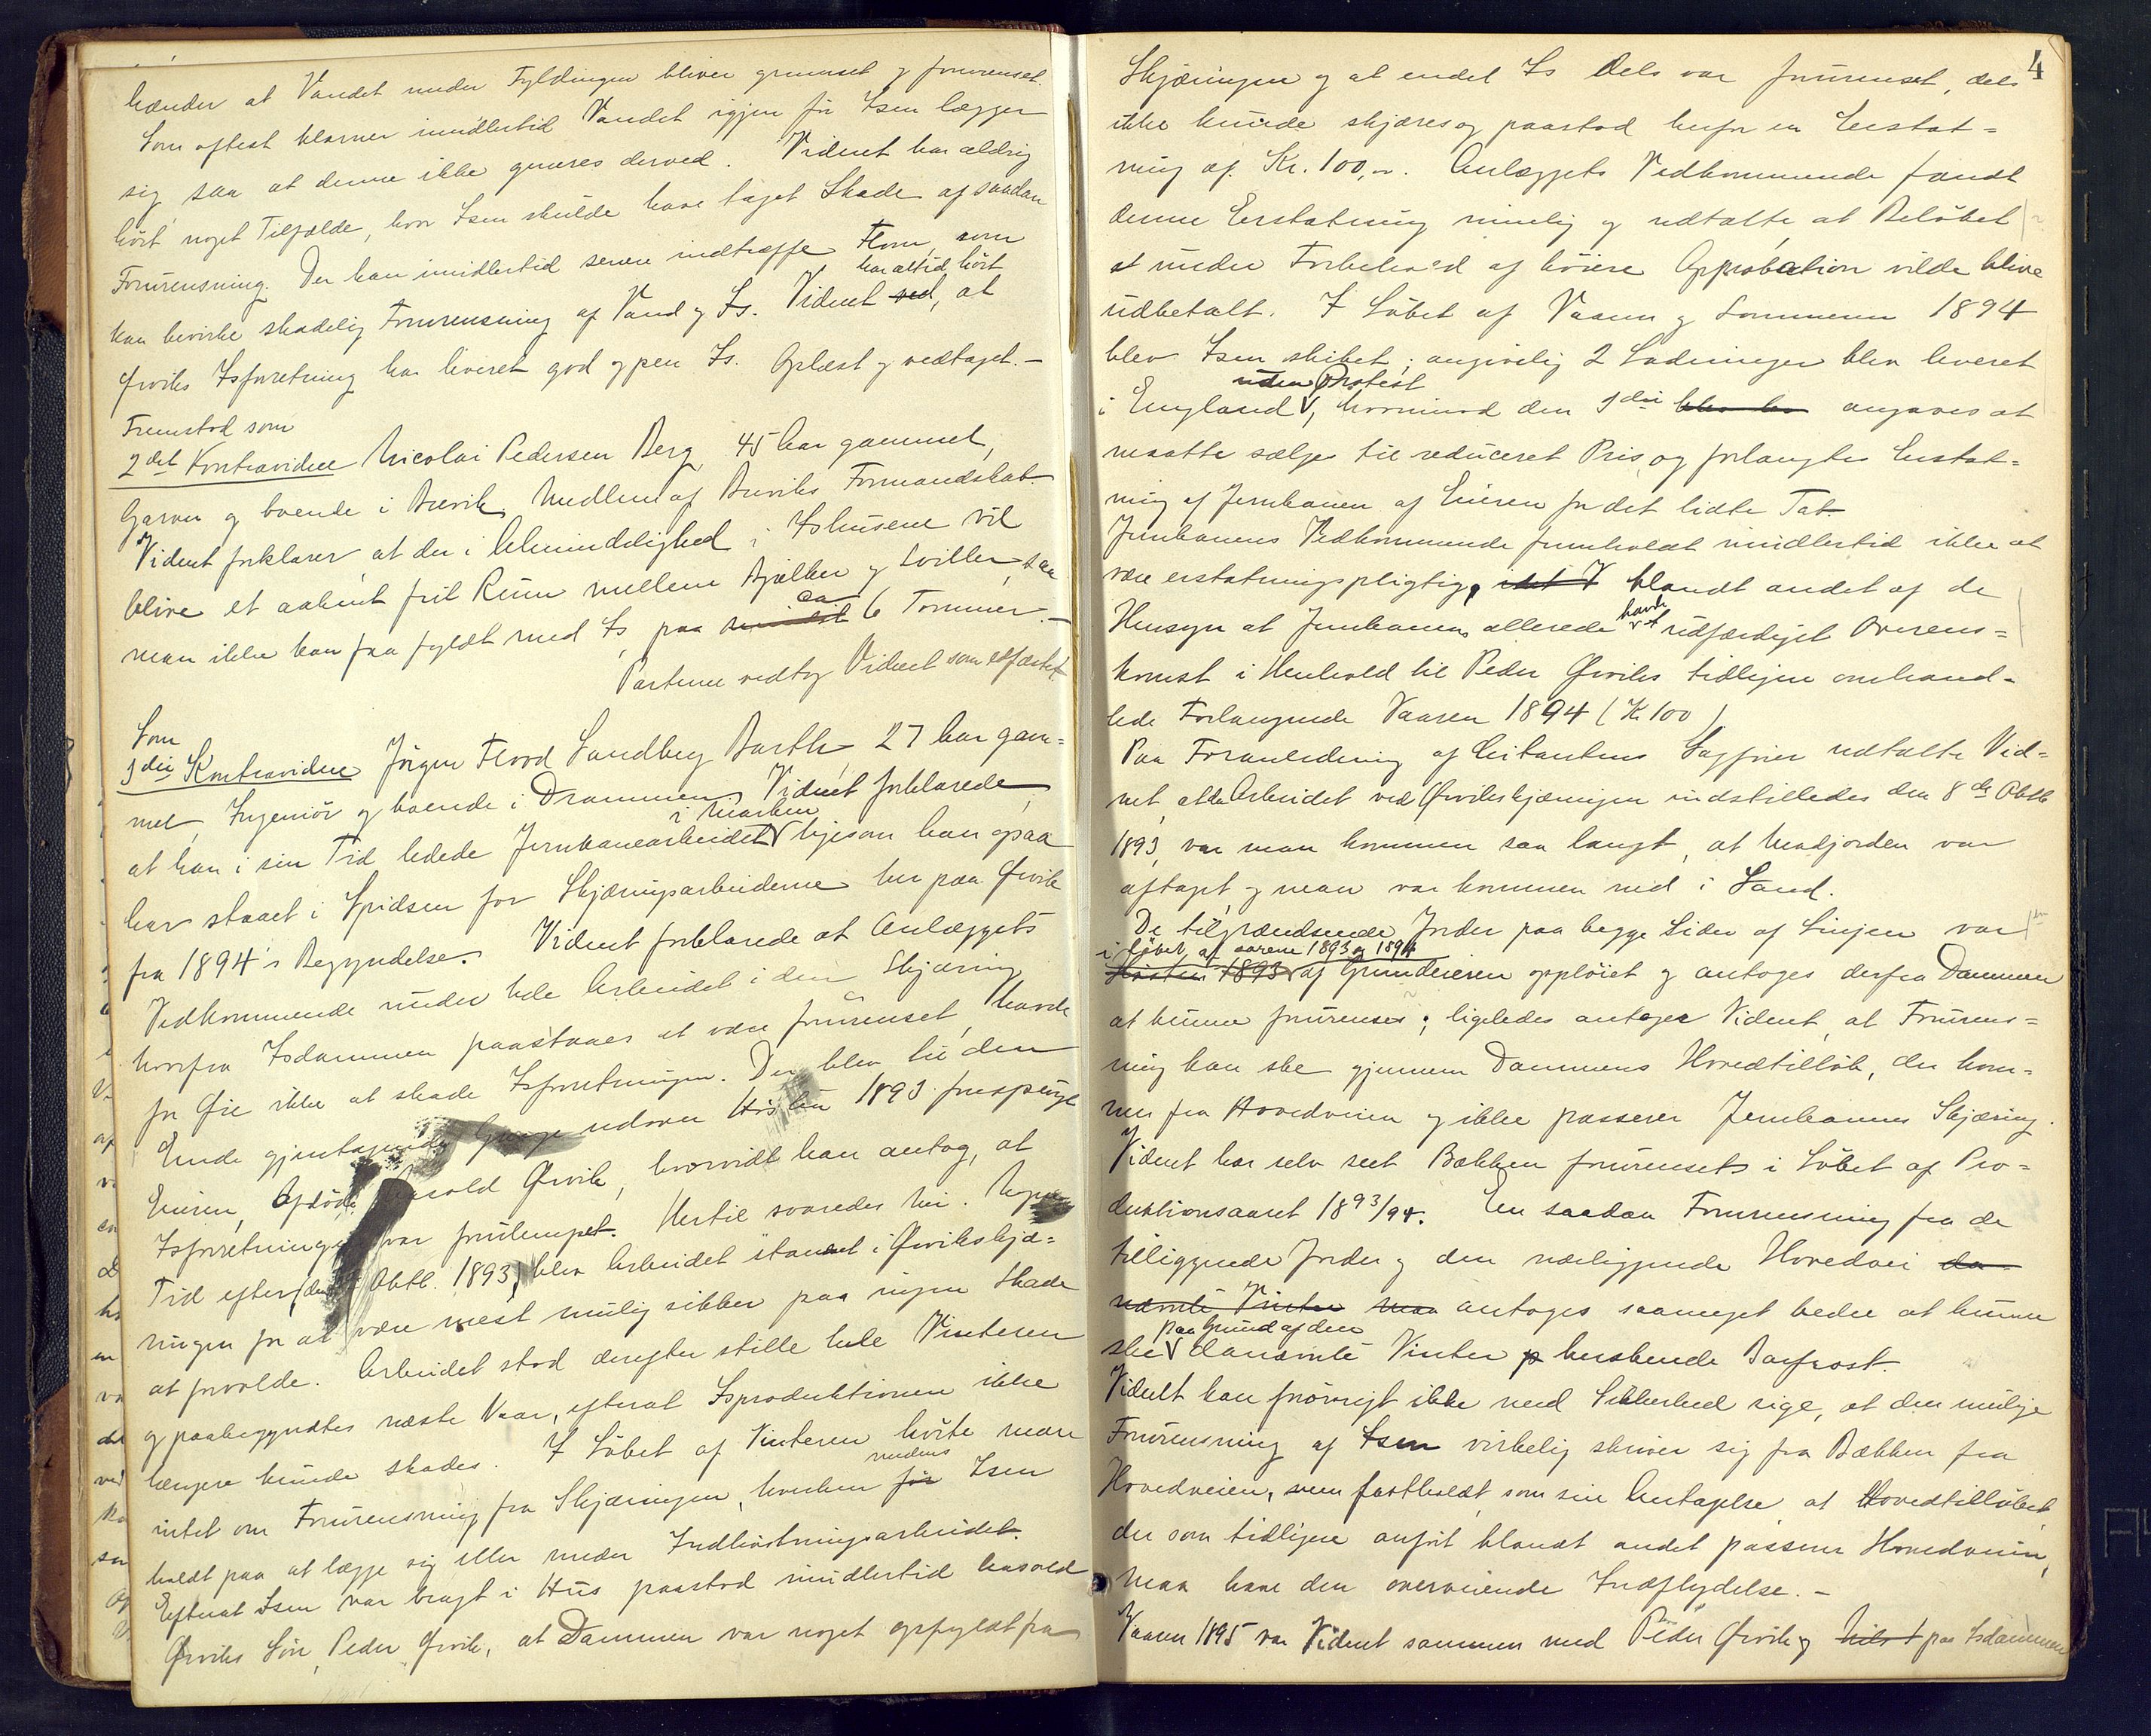 hænder at Vandet under Fyldingen bliver grumset og forurenset.
Som oftest klarner imidlertid Vandet igjen før Isen lægger
sig, saa at denne ikke generes derved. Vidnet har aldrig
hørt noget Tilfælde, hvor Isen skulde have taget Skade af saadan
Forurensning. Der kan imidlertid senere indtræffe Flom, som
kan bevirke skadelig Forurensning af Vand og Is. Vidnet ved, har altid hørt at
Ørviks Isforretning har leveret god og pen Is. Oplæst og vedtaget.—
Fremstod som
2det Kontravidne Nicolai Pedersen Berg 45 Aar gammel,
Garver og boende i Brevik, Medlem af Breviks Formandskab.
Vidnet forklarer, at der i Almindelighed i Ishusene vil
blive et aabent frit Rum mellem Bjælker og Sviller, saa
man ikke kan faa fyldt med Is, paa ca 6 Tommer.—
Parterne vedtog Vidnet som edfæstet.
Som
3die Kontravidne Jørgen Flood Sandberg Barth, 27 Aar gam=
mel, Ingeniør og boende i Drammen. Vidnet forklarede,
at han i sin Tid ledede Jernbanearbeidet i Marken ligesom han ogsaa
har staaet i Spidsen for Skjæringsarbeiderne her paa Ørvik
fra 1894's Begyndelse. Vidnet forklarede at Anlæggets
Vedkommende under hele Arbeidet i den Skjæring,
hvorfra Isdammen paastaaes at være forurenset, havde
for Øie ikke at skade Isforretningen. Der blev til den
Ende gjentagende Gange udover Høsten 1893 forespurgt
Eieren, Afdøde Harald Ørvik, hvorvidt han antog, at
Isforretningen var forulempet. Hertil svaredes nei. Nogen
Tid efter (den Oktb. 1893) blev Arbeidet standset i Ørvikskjæ=
ringen for at være mest mulig sikker paa ingen Skade
at forvolde. Arbeidet stod derefter stille hele Vinteren
og paabegyndtes næste Vaar, efterat Isproduktionen ikke
længere kunde skades. I Løbet af Vinteren hørte man
intet om Forurensning fra Skjæringen, hverken før medens Isen
holdt paa at lægge sig eller under Indhøstningsarbeidet.
Efterat Isen var bragt i Hus paastod imidlertid Harald
Ørviks Søn, Peder Ørvik, at Dammen var noget opfyldt fra
4
Skjæringen og at endel Is dels var forurenset, dels
ikke kunde skjæres og paastod herfor en Erstat=
ning af Kr. 100,-. Anlæggets Vedkommende fandt
denne Erstatning rimelig og udtalte, at Beløbet
under Forbehold af høiere Approbation vilde blive
udbetalt. I Løbet af Vaaren og Sommeren 1894
blev Isen skibet; angivelig 2 Ladninger blev leveret
i England uden Protest, hvorimod den 3die blev angaves at
maatte sælges til reduceret Pris, og forlangtes Erstat=
ning af Jernbanen af Eieren for det lidte Tab.
Jernbanens Vedkommende fremholdt imidlertid ikke at
være erstatningspligtig, idet blandt andet af de
Hensyn at Jernbanen allerede havde udfærdiget Overens=
komst i Henhold til Peder Ørviks tidligere omhand=
lede Forlangende Vaaren 1894 (Kr 100)
Paa Foranledning af Citantens Sagfører udtalte Vid=
net, at da Arbeidet ved Ørvikskjæringen indstilledes den 8de Oktb
1893, var man kommen saa langt, at Madjorden var
aftaget, og man var kommen ned i Sand.
De tilgrændsende Jorder paa begge Sider af Linjen var
i Løbet af aarene 1893 og 1894
Høsten 1893 af Grundeieren oppløiet og antoges derfra Dammen
at kunne forurenses; ligeledes antager Vidnet, at Forurens=
ning kan ske gjennem Dammens Hovedtilløb, der kom=
mer fra Hovedveien og ikke passerer Jernbanens Skjæring.
Vidnet har selv seet Bækken forurensets i Løbet af Pro=
duktionsaaret 1893/94. En saadan Forurensning fra de
tilliggende Jorder og den nærliggende Hovedvei da
nævnte Vinter maa antoges saameget bedre at kunne
ske paa Grund af den danævnte Vinter herskende Barfrost.
Vidnet kan forøvrigt ikke med Sikkerhed sige, at den mulige
Forurensning af Isen virkelig skriver sig fra Bækken fra
Hovedveien, men fastholdt som sin Antagelse, at Hovedtilløbet,
der som tidligere anført blandt andet passerer Hovedveien,
maa have den overveiende Indflydelse.—
Vaaren 1895 var Vidnet sammen med Peder Ørvik og paa Isdammen